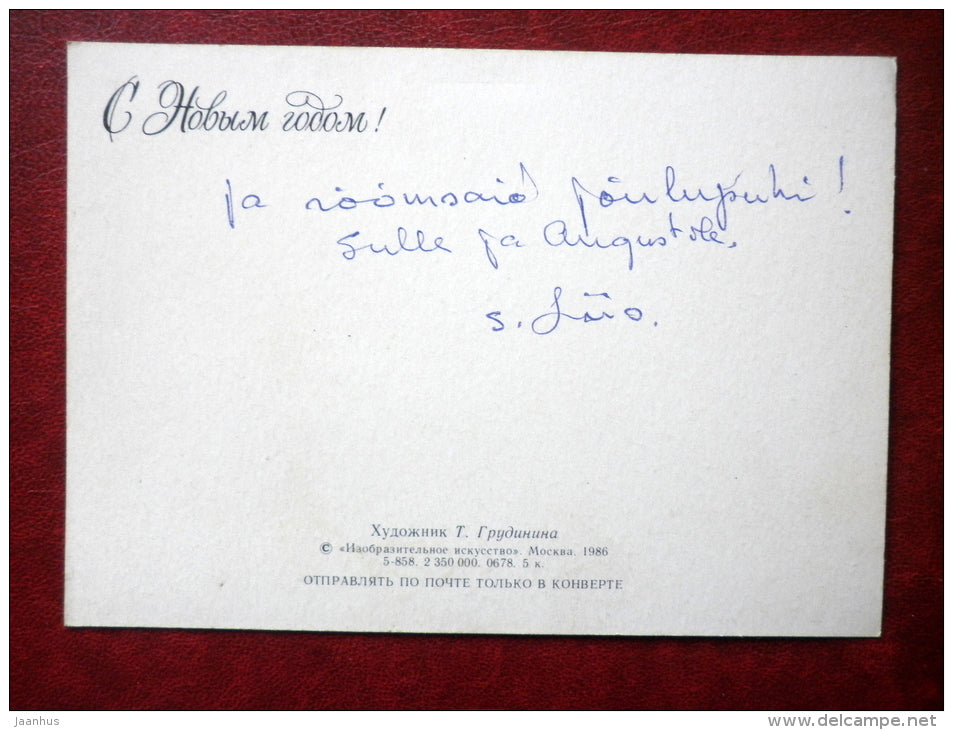 С Новым годом!
ja rõõmsaid jõulupühi!
Sulle ja Augustile.
S.
Художник Т. Грудинина
© «Изобразительное искусство». Москва. 1986
5-858. 2 350 000. 0678. 5 к.
ОТПРАВЛЯТЬ ПО ПОЧТЕ ТОЛЬКО В КОНВЕРТЕ
jaanhus
www.delcampe.net